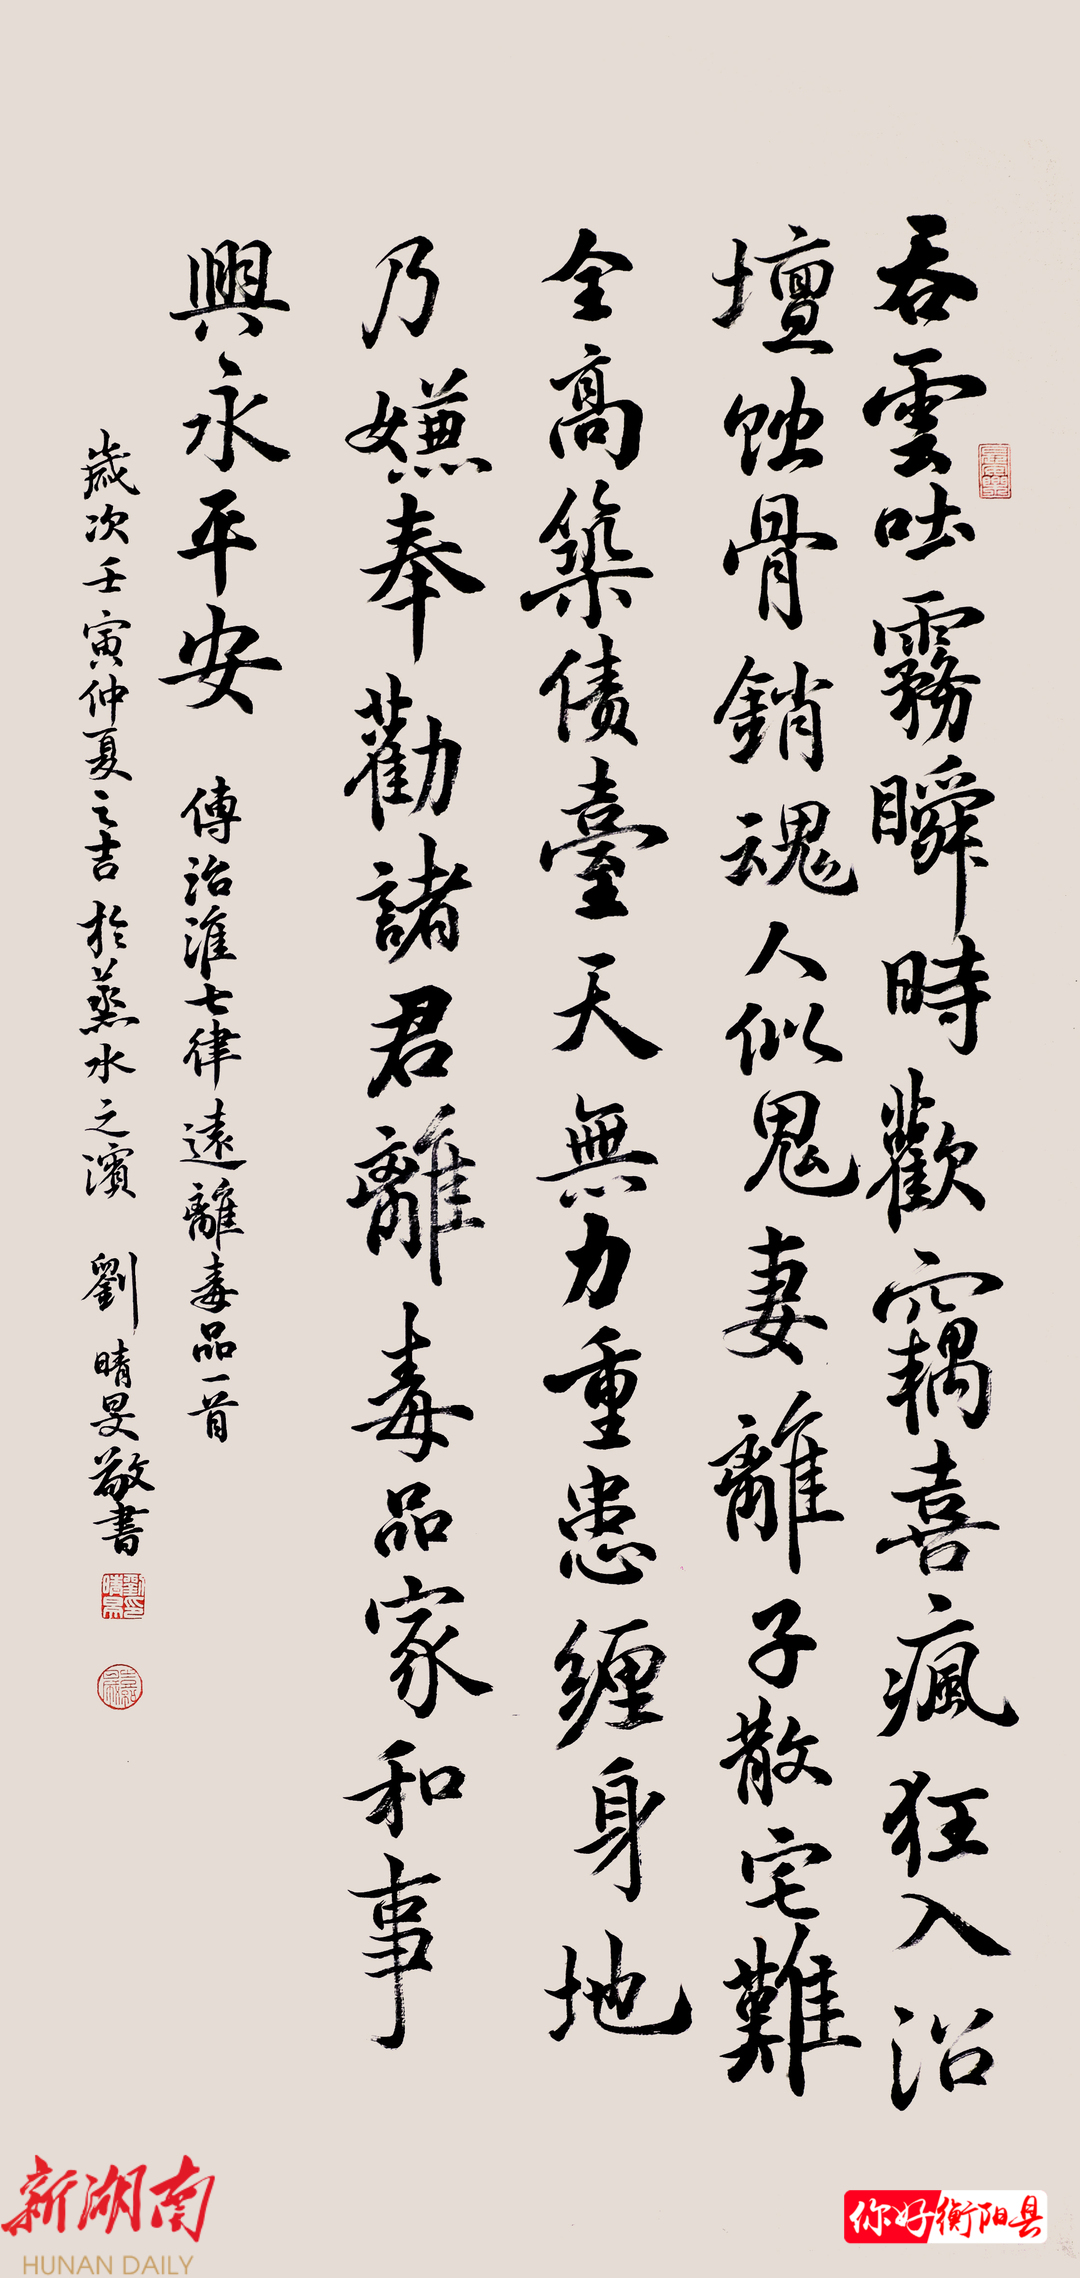 吞雲吐霧瞬時歡竊喜瘋狂入沼
壇蚀骨銷魂人似鬼妻離子散宅難
全高築债臺天無力重患缠身地
乃嫌奉勸諸君離毒品家和事
興永平安
傳治淮七律遠離毒品一首
歲次壬寅仲夏之吉於蒸水之濱 劉晴旻敬書
新湖南
HUNAN DAILY
你好衡阳县